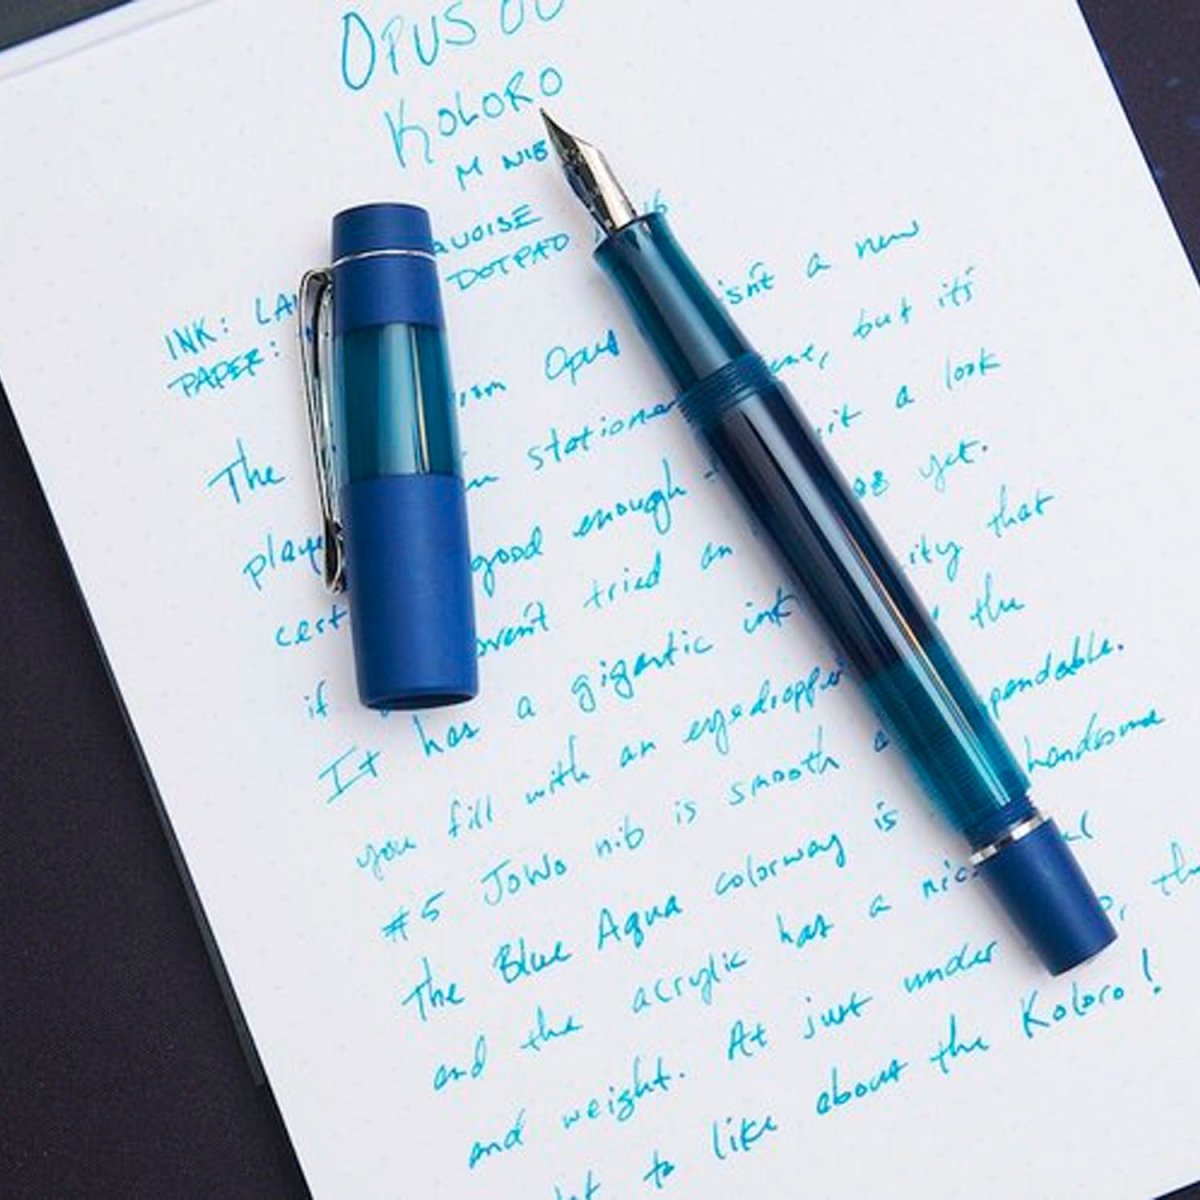 OPUS 88
KOLORO
M NIB
INK: LA QUOISE 16
PAPER: DOTPAD
The from Opus isn't a new
playe in stationer ne, but it's
cert good enough t it a look
if haven't tried an 88 yet.
It has a gigantic ink ity that
you fill with an eyedropper the
#5 JoWo nib is smooth a pendable.
The Blue Aqua colorway is handsome
and the acrylic has a nice l
and weight. At just under 0, the
to like about the Koloro!